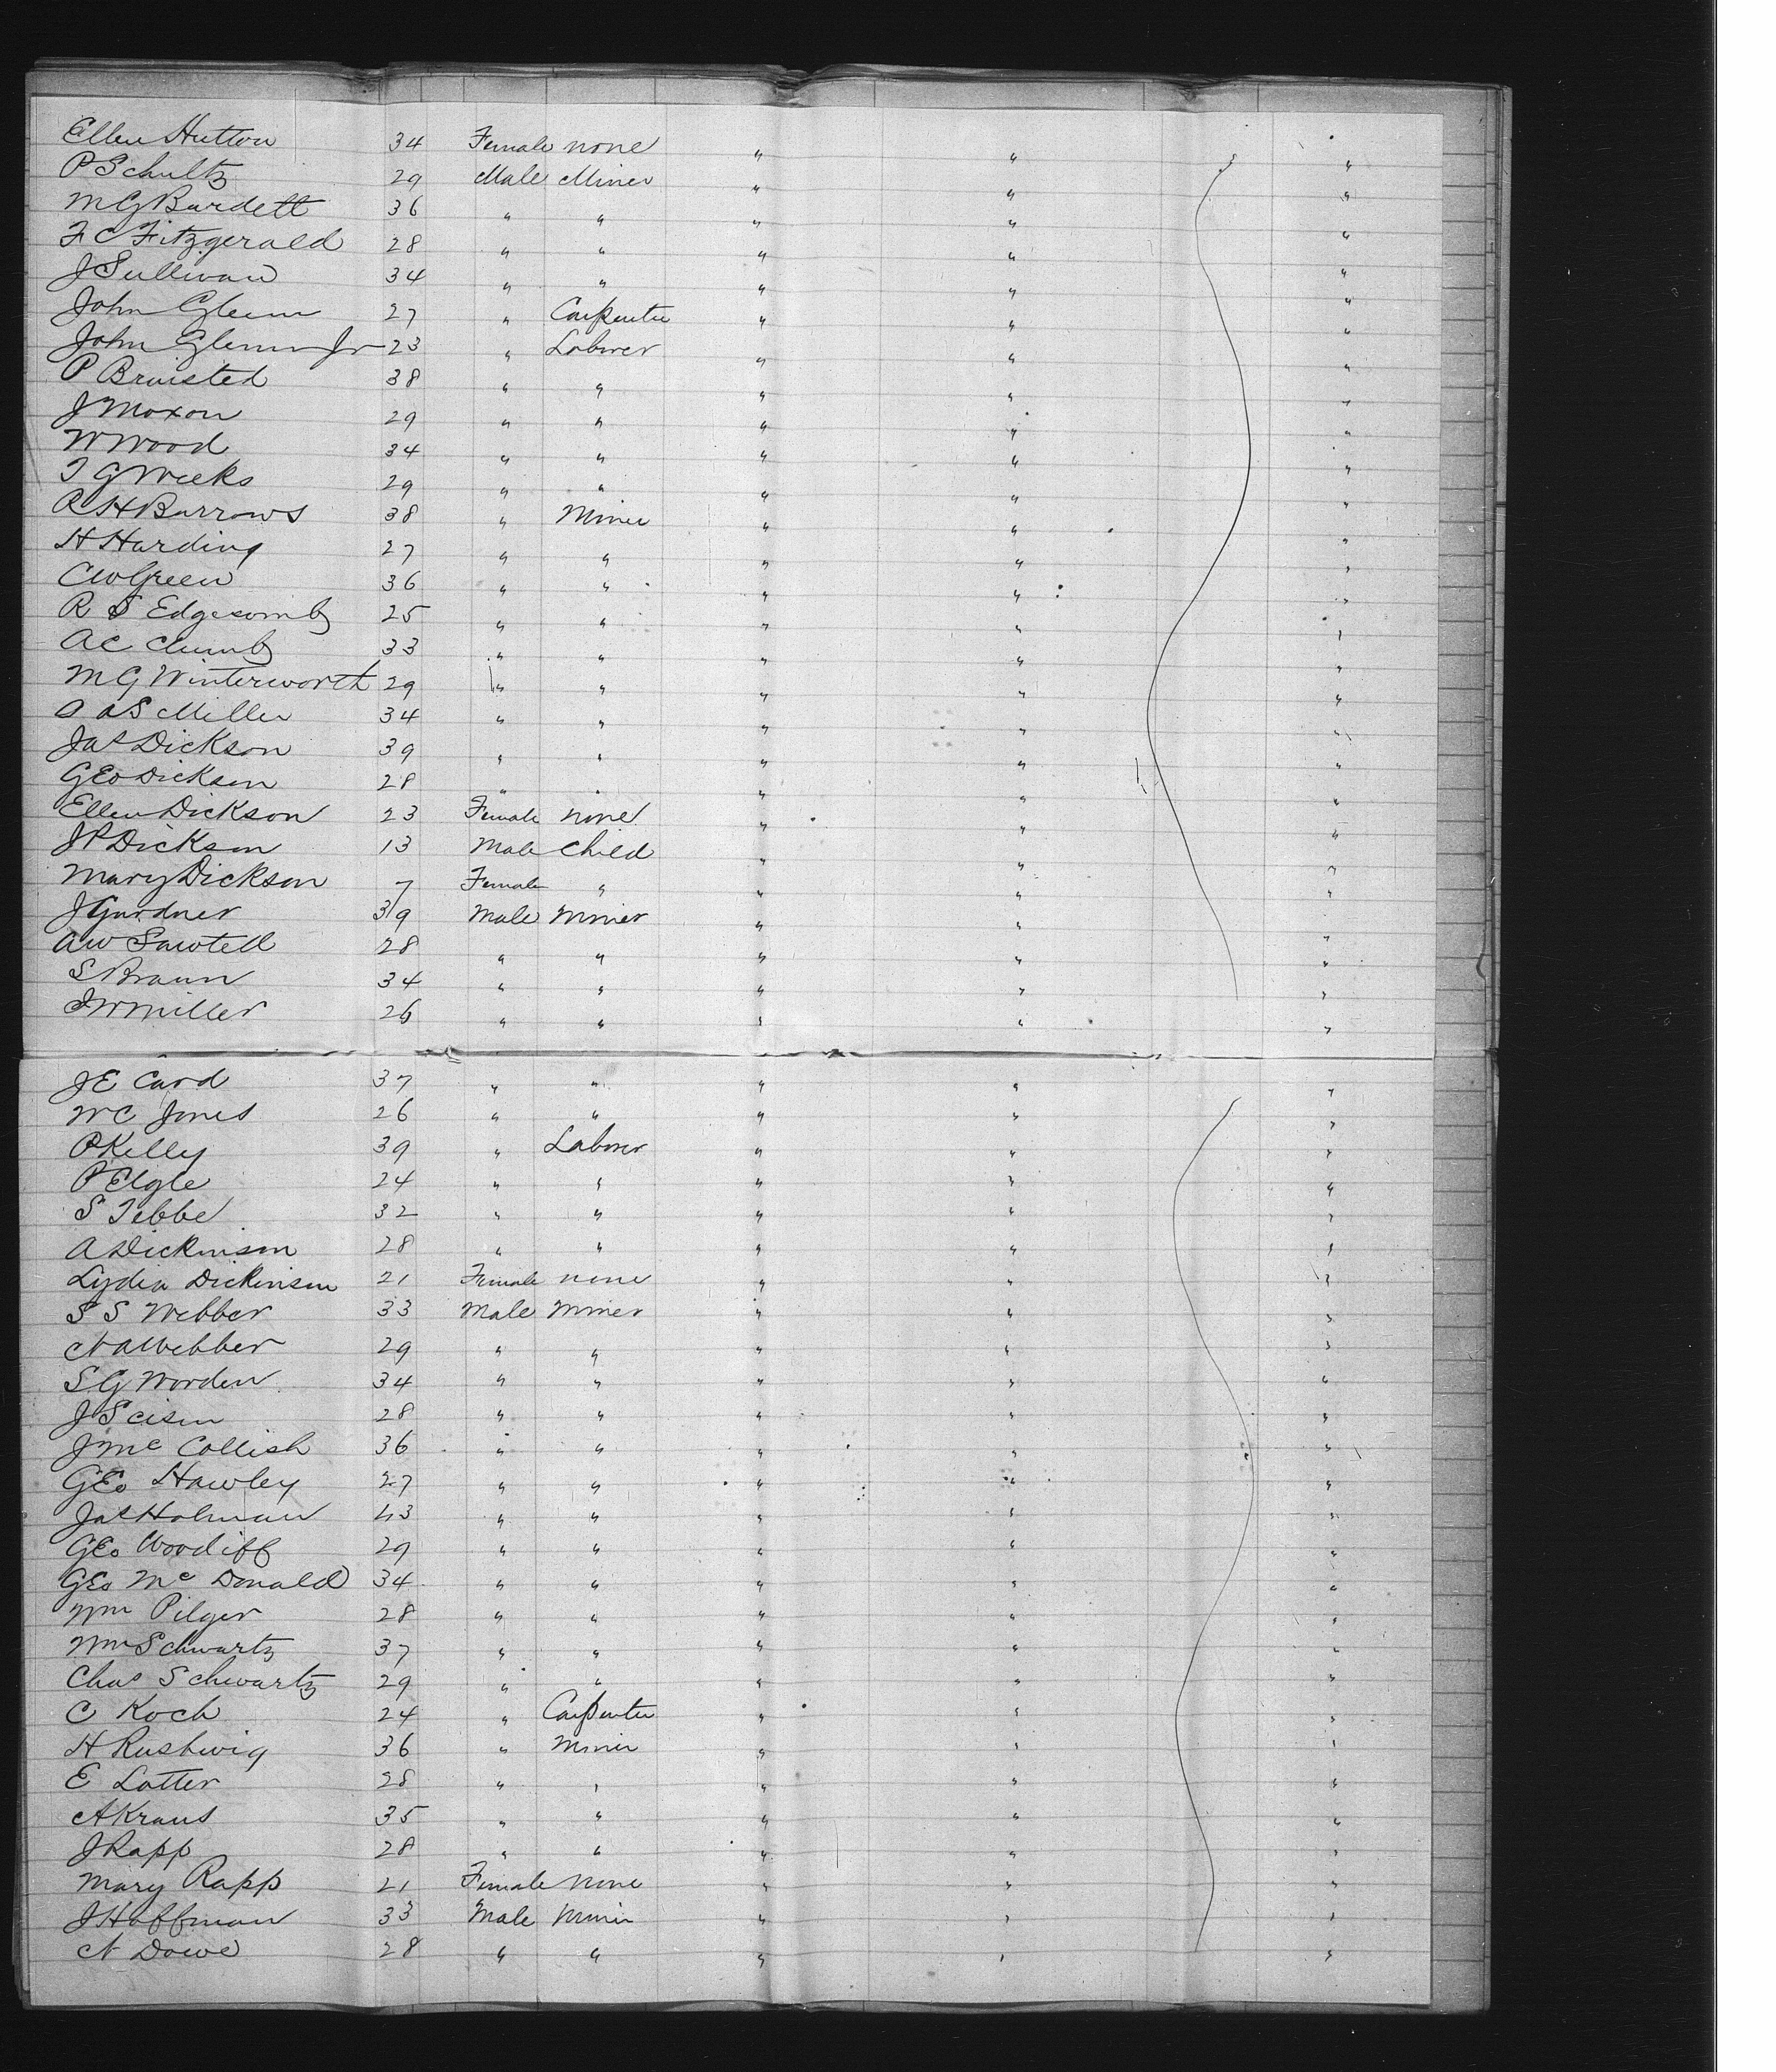 Ellen Hutton 34 Female none " " "
P Schultz 29 Male Miner " " "
M G Burdett 36 " " " " "
F C Fitzgerald 28 " " " " "
J Sullivan 34 " " " " "
John Glenn 27 " Carpenter " " "
John Glenn Jr 23 " Laborer " " "
P Braisted 38 " " " " "
J Moxon 29 " " " " "
W Wood 34 " " " " "
T G Weeks 29 " " " " "
R H Burrows 38 " Miner " " "
H Harding 27 " " " " "
C W Green 36 " " " " "
R S Edgecomb 25 " " " " "
A C Clumb 33 " " " " "
M G Winterworth 29 " " " " "
A S Miller 34 " " " " "
Jas Dickson 39 " " " " "
Geo Dickson 28 " " " " "
Ellen Dickson 23 Female none " " "
J P Dickson 13 Male Child " " "
Mary Dickson 7 Female " " " "
J Gardner 39 Male Miner " " "
A W Sawtell 28 " " " " "
S Braun 34 " " " " "
J W Miller 26 " " " " "
J E Card 37 " " " " "
W C Jones 26 " " " " "
P Kelly 39 " Laborer " " "
P Elgle 24 " " " " "
S Tebbe 32 " " " " "
A Dickinson 28 " " " " "
Lydia Dickinson 21 Female none " " "
S S Webber 33 Male Miner " " "
N A Webber 29 " " " " "
S G Worden 34 " " " " "
J Scism 28 " " " " "
J Mc Collish 36 " " " " "
Geo Hawley 27 " " " " "
Jas Holman 43 " " " " "
Geo Woodiff 29 " " " " "
Geo Mc Donald 34 " " " " "
Wm Pilger 28 " " " " "
Wm Schwartz 37 " " " " "
Chas Schwartz 29 " " " " "
C Koch 24 " Carpenter " " "
H Rushwig 36 " Miner " " "
E Latter 28 " " " " "
A Kraus 35 " " " " "
J Rapp 28 " " " " "
Mary Rapp 21 Female none " " "
J Hoffman 33 Male Miner " " "
N Dowe 28 " " " " "